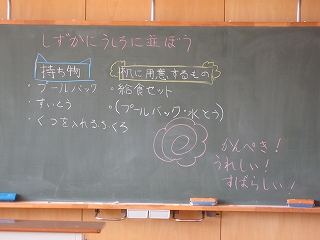 しずかにうしろに並ぼう
持ち物
・プールバック
・すいとう
・くつを入れるふくろ
机に用意するもの
・給食セット
・(プールバック・水とう)
かんぺき!
うれしい!
すばらしい!